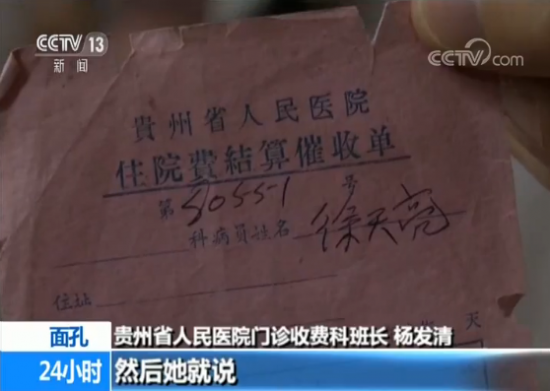 CCTV 13
新闻
CCTV.com
貴州省人民医院
住院费結算催收单
第5055-1号
科病員姓名 徐天亮
住址
天
面孔 贵州省人民医院门诊收费科班长 杨发清
24小时 然后她就说